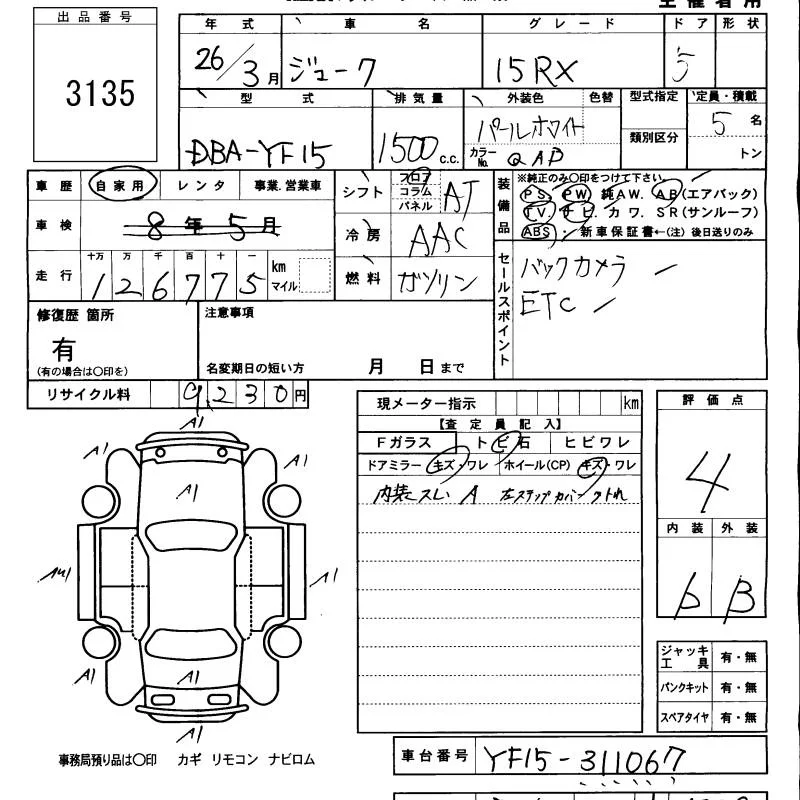 出品番号
3135
年式 車名 グレード ドア 形状
26/3月 ジューク 15RX 5
型式 排気量 外装色 色替 型式指定 定員・積載
DBA-YF15 1500c.c. パールホワイト 類別区分 5名
カラーNo. QAB トン
車歴 自家用 レンタ 事業.営業車
シフト フロア コラム パネル AT
装備品 ※純正のみ〇印をつけて下さい。
PS. PW 純AW. AB(エアバック)
TV. ナビ. カワ. SR(サンルーフ)
ABS . 新車保証書←(注) 後日送りのみ
車検 8年5月
冷房 AAC
走行 十万 万 千 百 十 一
126775 km マイル
燃料 ガソリン
セールスポイント バックカメラ
ETC
修復歴 箇所
有
(有の場合は〇印を)
注意事項
名変期日の短い方 月 日まで
リサイクル料 9,230円
現メーター指示 km
【査定員記入】
Fガラス トビ石 ヒビワレ
ドアミラー キズ・ワレ ホイール(CP) キズ・ワレ
内装スレ A 左ステップカバー外れ
評価点
4
内装 外装
B
A1
A1 A1
A1
A1
A1
A1
A1
A1
ジャッキ工具 有・無
パンクキット 有・無
スペアタイヤ 有・無
車台番号 YF15-311067
事務局預り品は〇印 カギ リモコン ナビロム